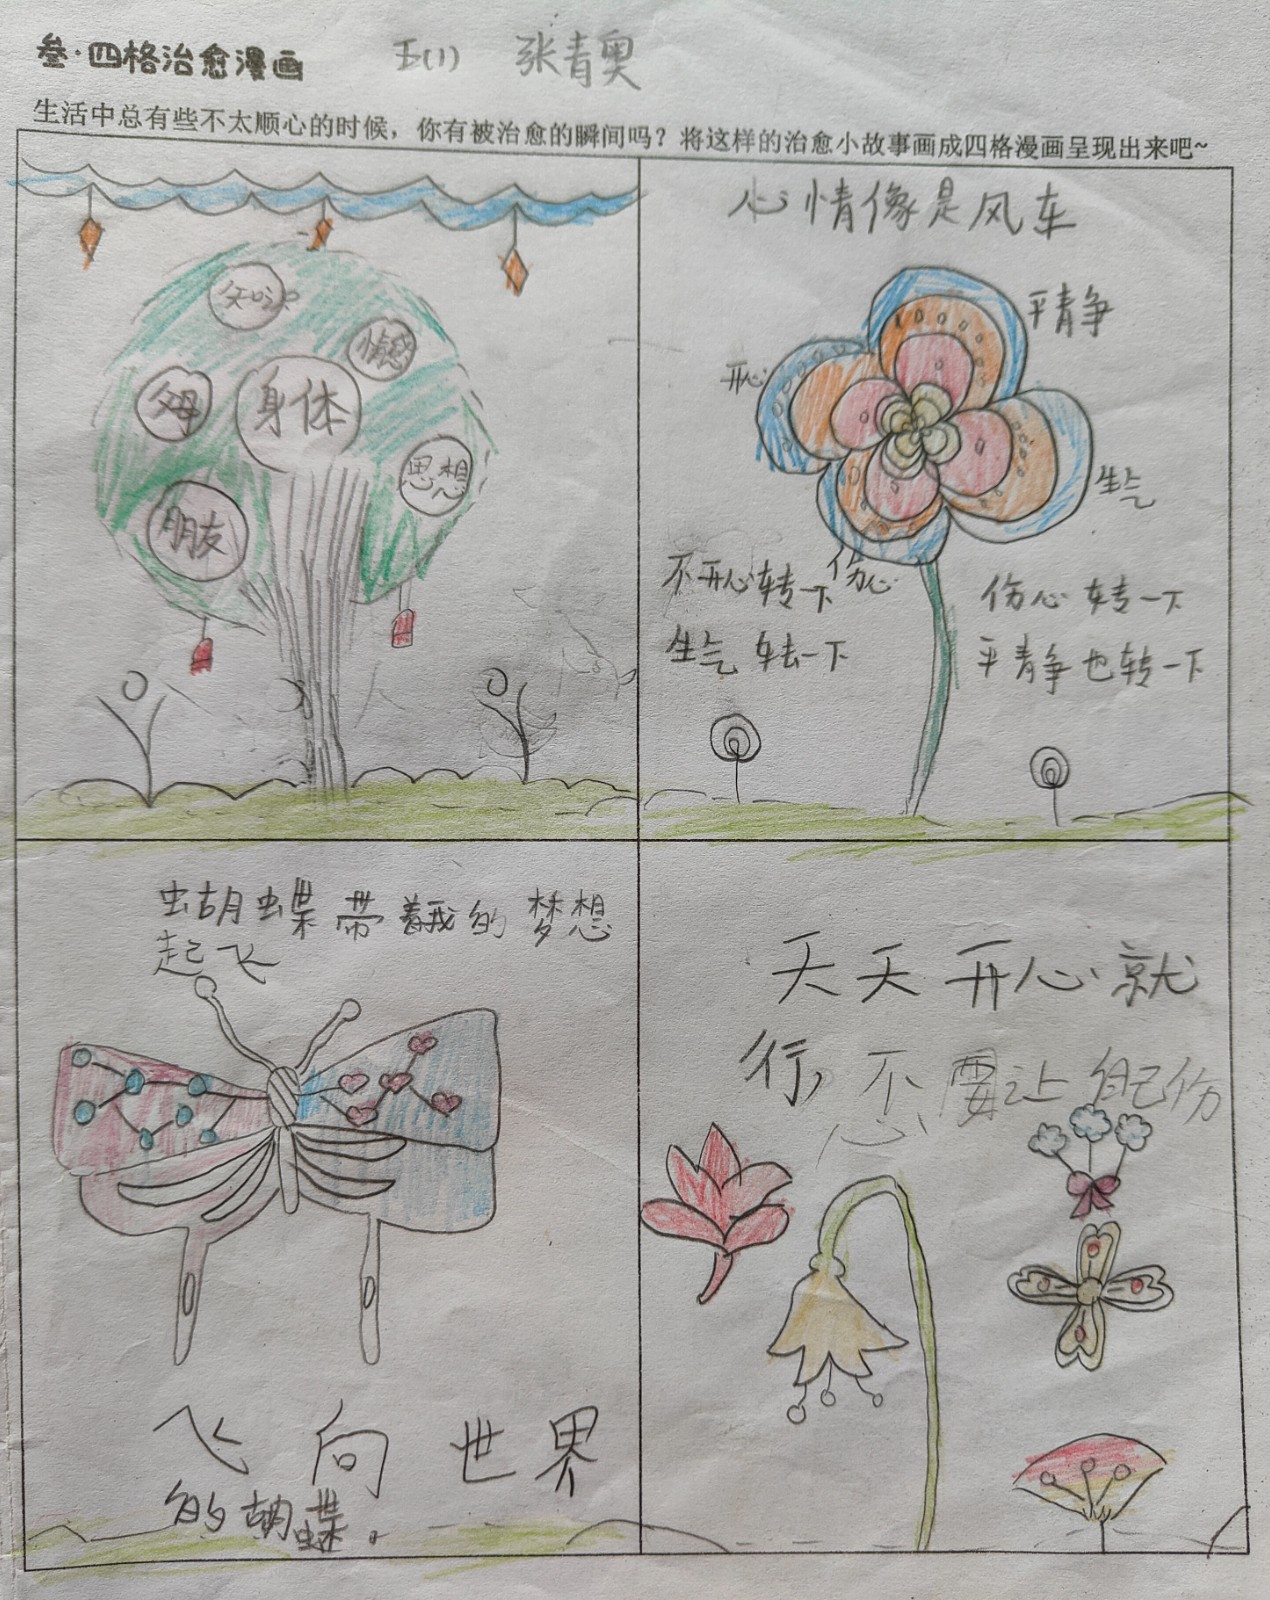 叁·四格治愈漫画 五(1) 张青奥
生活中总有些不太顺心的时候，你有被治愈的瞬间吗？将这样的治愈小故事画成四格漫画呈现出来吧~
知识
情感
父母
身体
思想
朋友
心情像是风车
平静
开心
生气
伤心
不开心转一下
生气转一下
伤心转一下
平静也转一下
蝴蝶带着我的梦想
起飞
飞向世界
的蝴蝶。
天天开心就
行,不要让自己伤
心